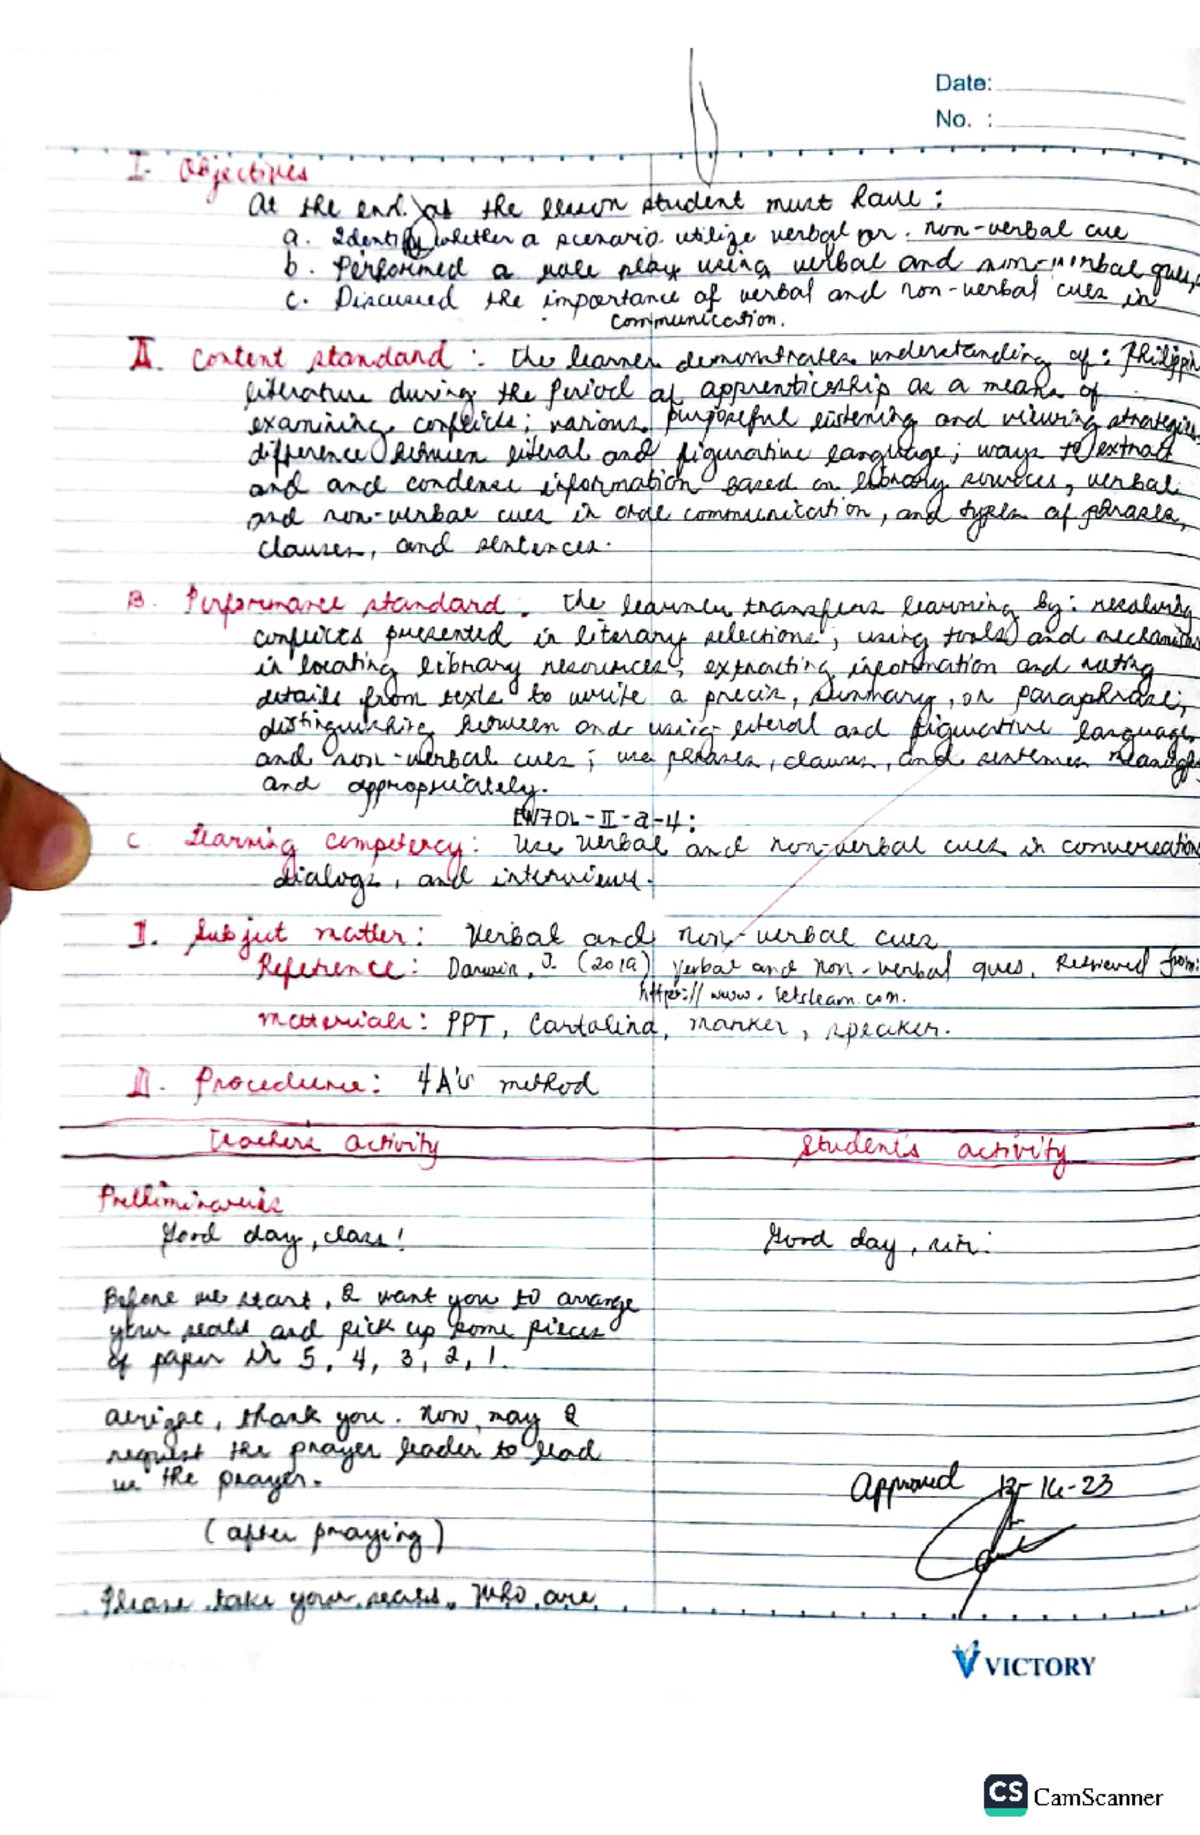 Date:
No. :
I. Objectives
At the end of the lesson student must have :
a. Identify whether a scenario utilize verbal or non-verbal cue
b. Performed a role play using verbal and non-verbal ques,
c. Discussed the importance of verbal and non-verbal cues in
communication.
II. Content standard : The learner demonstrates understanding of : Philippin
literature during the Period of apprenticeship as a means of
examining conflicts; various purposeful listening and viewing strategies
difference between literal and figurative language; ways to extract
and and condense information based on library sources, verbal
and non-verbal cues in oral communication, and types of phrases,
clauses, and sentences.
B. Performance standard. The learner transfers learning by: resolving
conflicts presented in literary selections; using tools and mechanisms
in locating library resources; extracting information and noting
details from texts to write a precis, summary, or paraphrase;
distinguishing between and using literal and figurative language
and non-verbal cues; use phrases, clauses, and sentences
and appropriately.
EN7OL-II-a-4:
C Learning competency: Use verbal and non-verbal cues in conversation
dialogs, and interviews.
I. Subject matter: Verbal and non-verbal cues
Reference: Darwin, J. (2019) Verbal and non-verbal ques. Retrieved from:
https://www.letslearn.com.
Materials: PPT, Cartolina, marker, speaker.
II. Procedure: 4A's method
Teacher's activity Student's activity
Prelliminaries
Good day, class! Good day, sir.
Before we start, I want you to arrange
your seats and pick up some pieces
of paper in 5, 4, 3, 2, 1.
Alright, thank you. Now, may I
request the prayer leader to lead
us the prayer.
Approved 12-14-23
(after praying)
Please take your seats. Who are
VICTORY
CS CamScanner